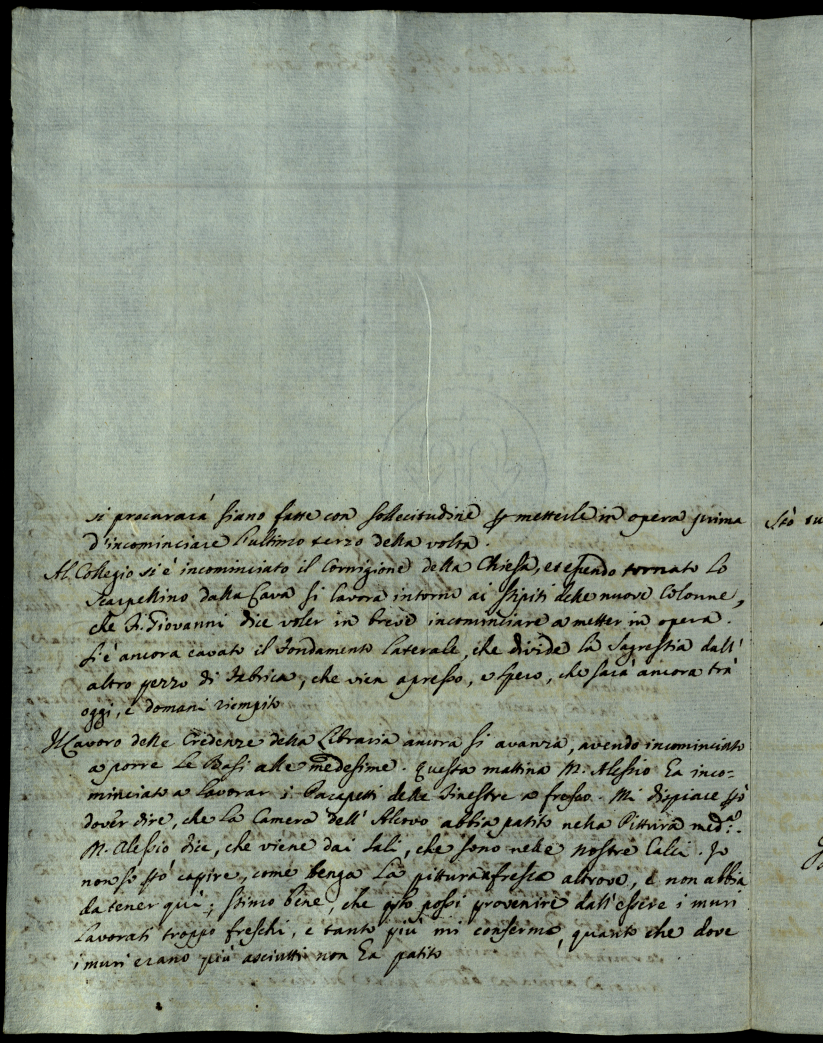 si procurarà siano fatte con sollecitudine p metterle in opera prima
d'incominciare l'ultimo terzo della volta.
Al Collegio si è incominciato il Cornigione della Chiesa, et essendo tornato lo
Scarpellino dalla Cava si lavora intorno ai stipiti delle nuove Colonne,
che Fr. Giovanni dice voler in breve incominciare a metter in opera.
Si è ancora cavato il Fondamento laterale, che divide la Sagrestia dall'
altro pezzo di Fabrica, che vien apresso, e spero, che sarà ancora trà
oggi, e domani riempito
Il Lavoro delle Credenze della Libraria ancora si avanza, avendo incominciato
a porre le Basi alle medesime. Questa mattina M. Alessio ha inco-
minciato a lavorar i Parapetti delle Finestre a fresco. Mi dispiace però
dover dire, che la Camera dell'Alcovo abbia patito nella Pittura med.ª.
M. Alessio dice, che viene dai sali, che sono nelle nostre Calci. Io
non so però capire, come tenga la pittura a fresco altrove, e non abbia
da tener quì; stimo bene, che qsto possi provenire dall'essere i muri
lavorati troppo freschi, e tanto più mi confermo, quanto che dove
i muri erano più asciutti non ha patito
Stò